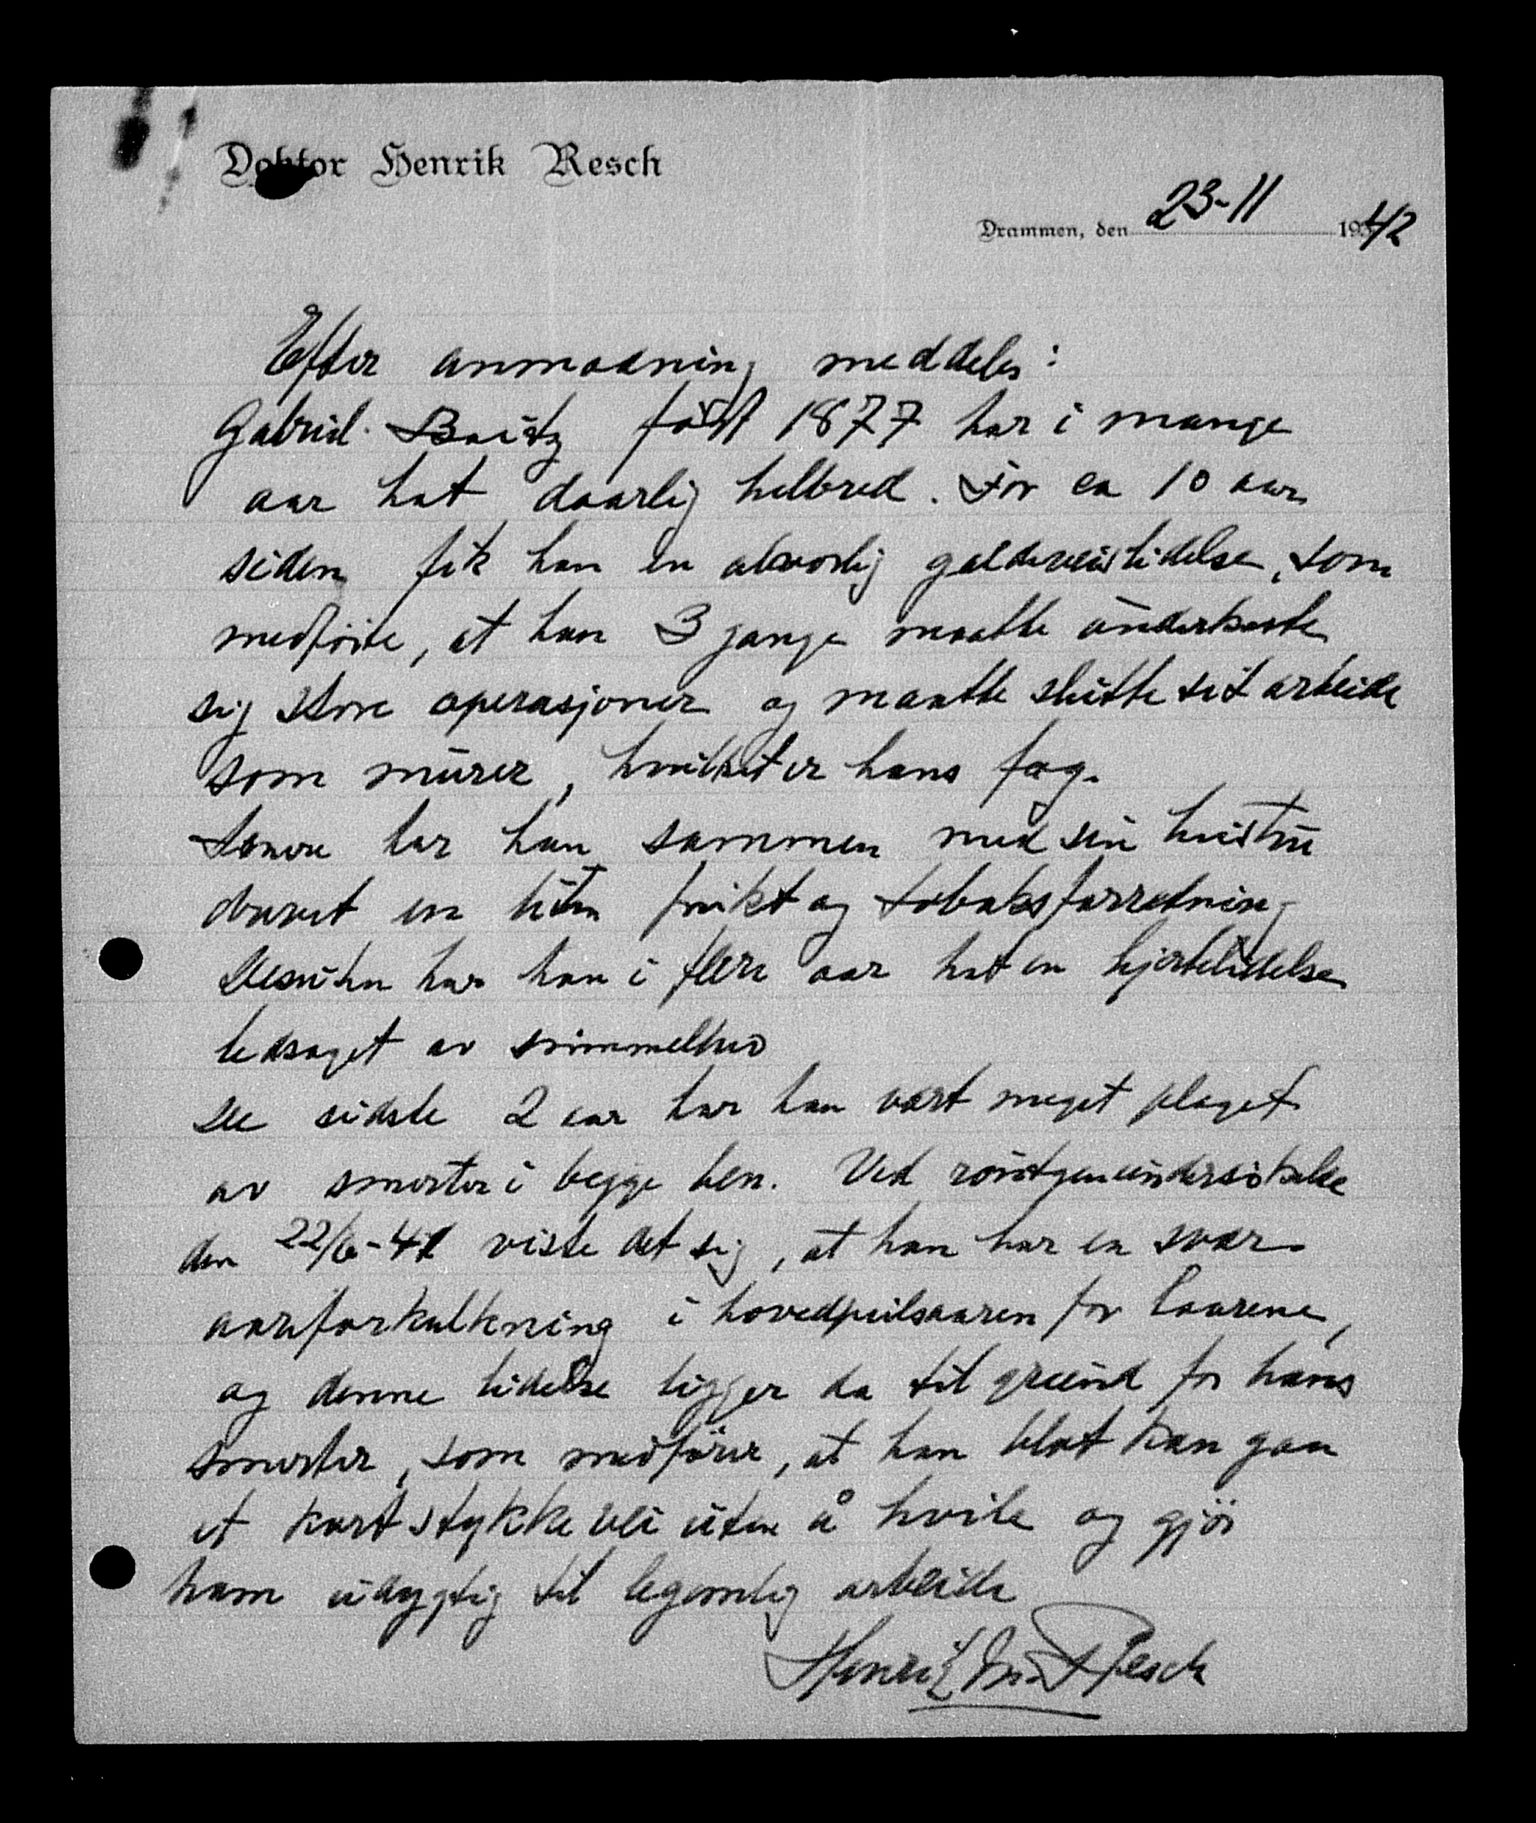 Doktor Henrik Resch
Drammen, den 23-11 1942
Efter anmodning meddeles:
Gabriel født 1877 har i mange
aar hat daarlig helbred. For ca 10 aar
siden fik han en alvorlig galdeveislidelse, som
medførte, at han 3 gange maatte underkaste
sig store operasjoner og maatte slutte sit arbeide
som murer, hvilket er hans fag.
Senere har han sammen med sin hustru
drevet en liten frukt og tobaksforretning
Desuten har han i flere aar hat en hjertelidelse
ledsaget av svimmelhed
De sidste 2 aar har han vært meget plaget
av smerter i begge ben. Ved røntgenundersøkelse
den 22/6-41 viste det sig, at han har en svær
aareforkalkning i hovedpulsaaren for laarene,
og denne lidelse ligger da til grund for hans
smerter, som medfører, at han blot kan gaa
et kort stykke vei uten å hvile og gjør
ham udygtig til legemlig arbeide
Henrik Resch